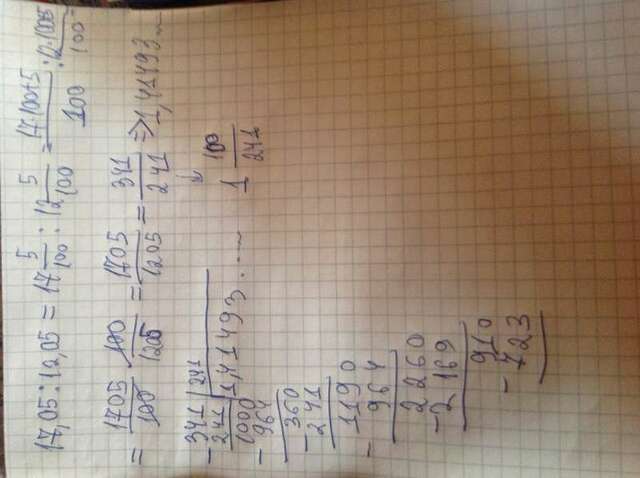 17,05:12,05 = 17 5/100 : 12 5/100 = 17·100+5/100 : 12·100+5/100
= 1705/100 · 100/1205 = 1705/1205 = 341/241 => 1,41493...
1 100/241
- 341 | 241
241 | 1,41493...
1000
- 964
360
- 241
1190
- 964
2260
- 2169
910
- 723